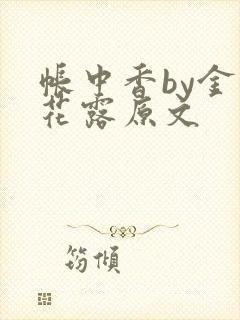 帐中香by金
花露原文
筠倾